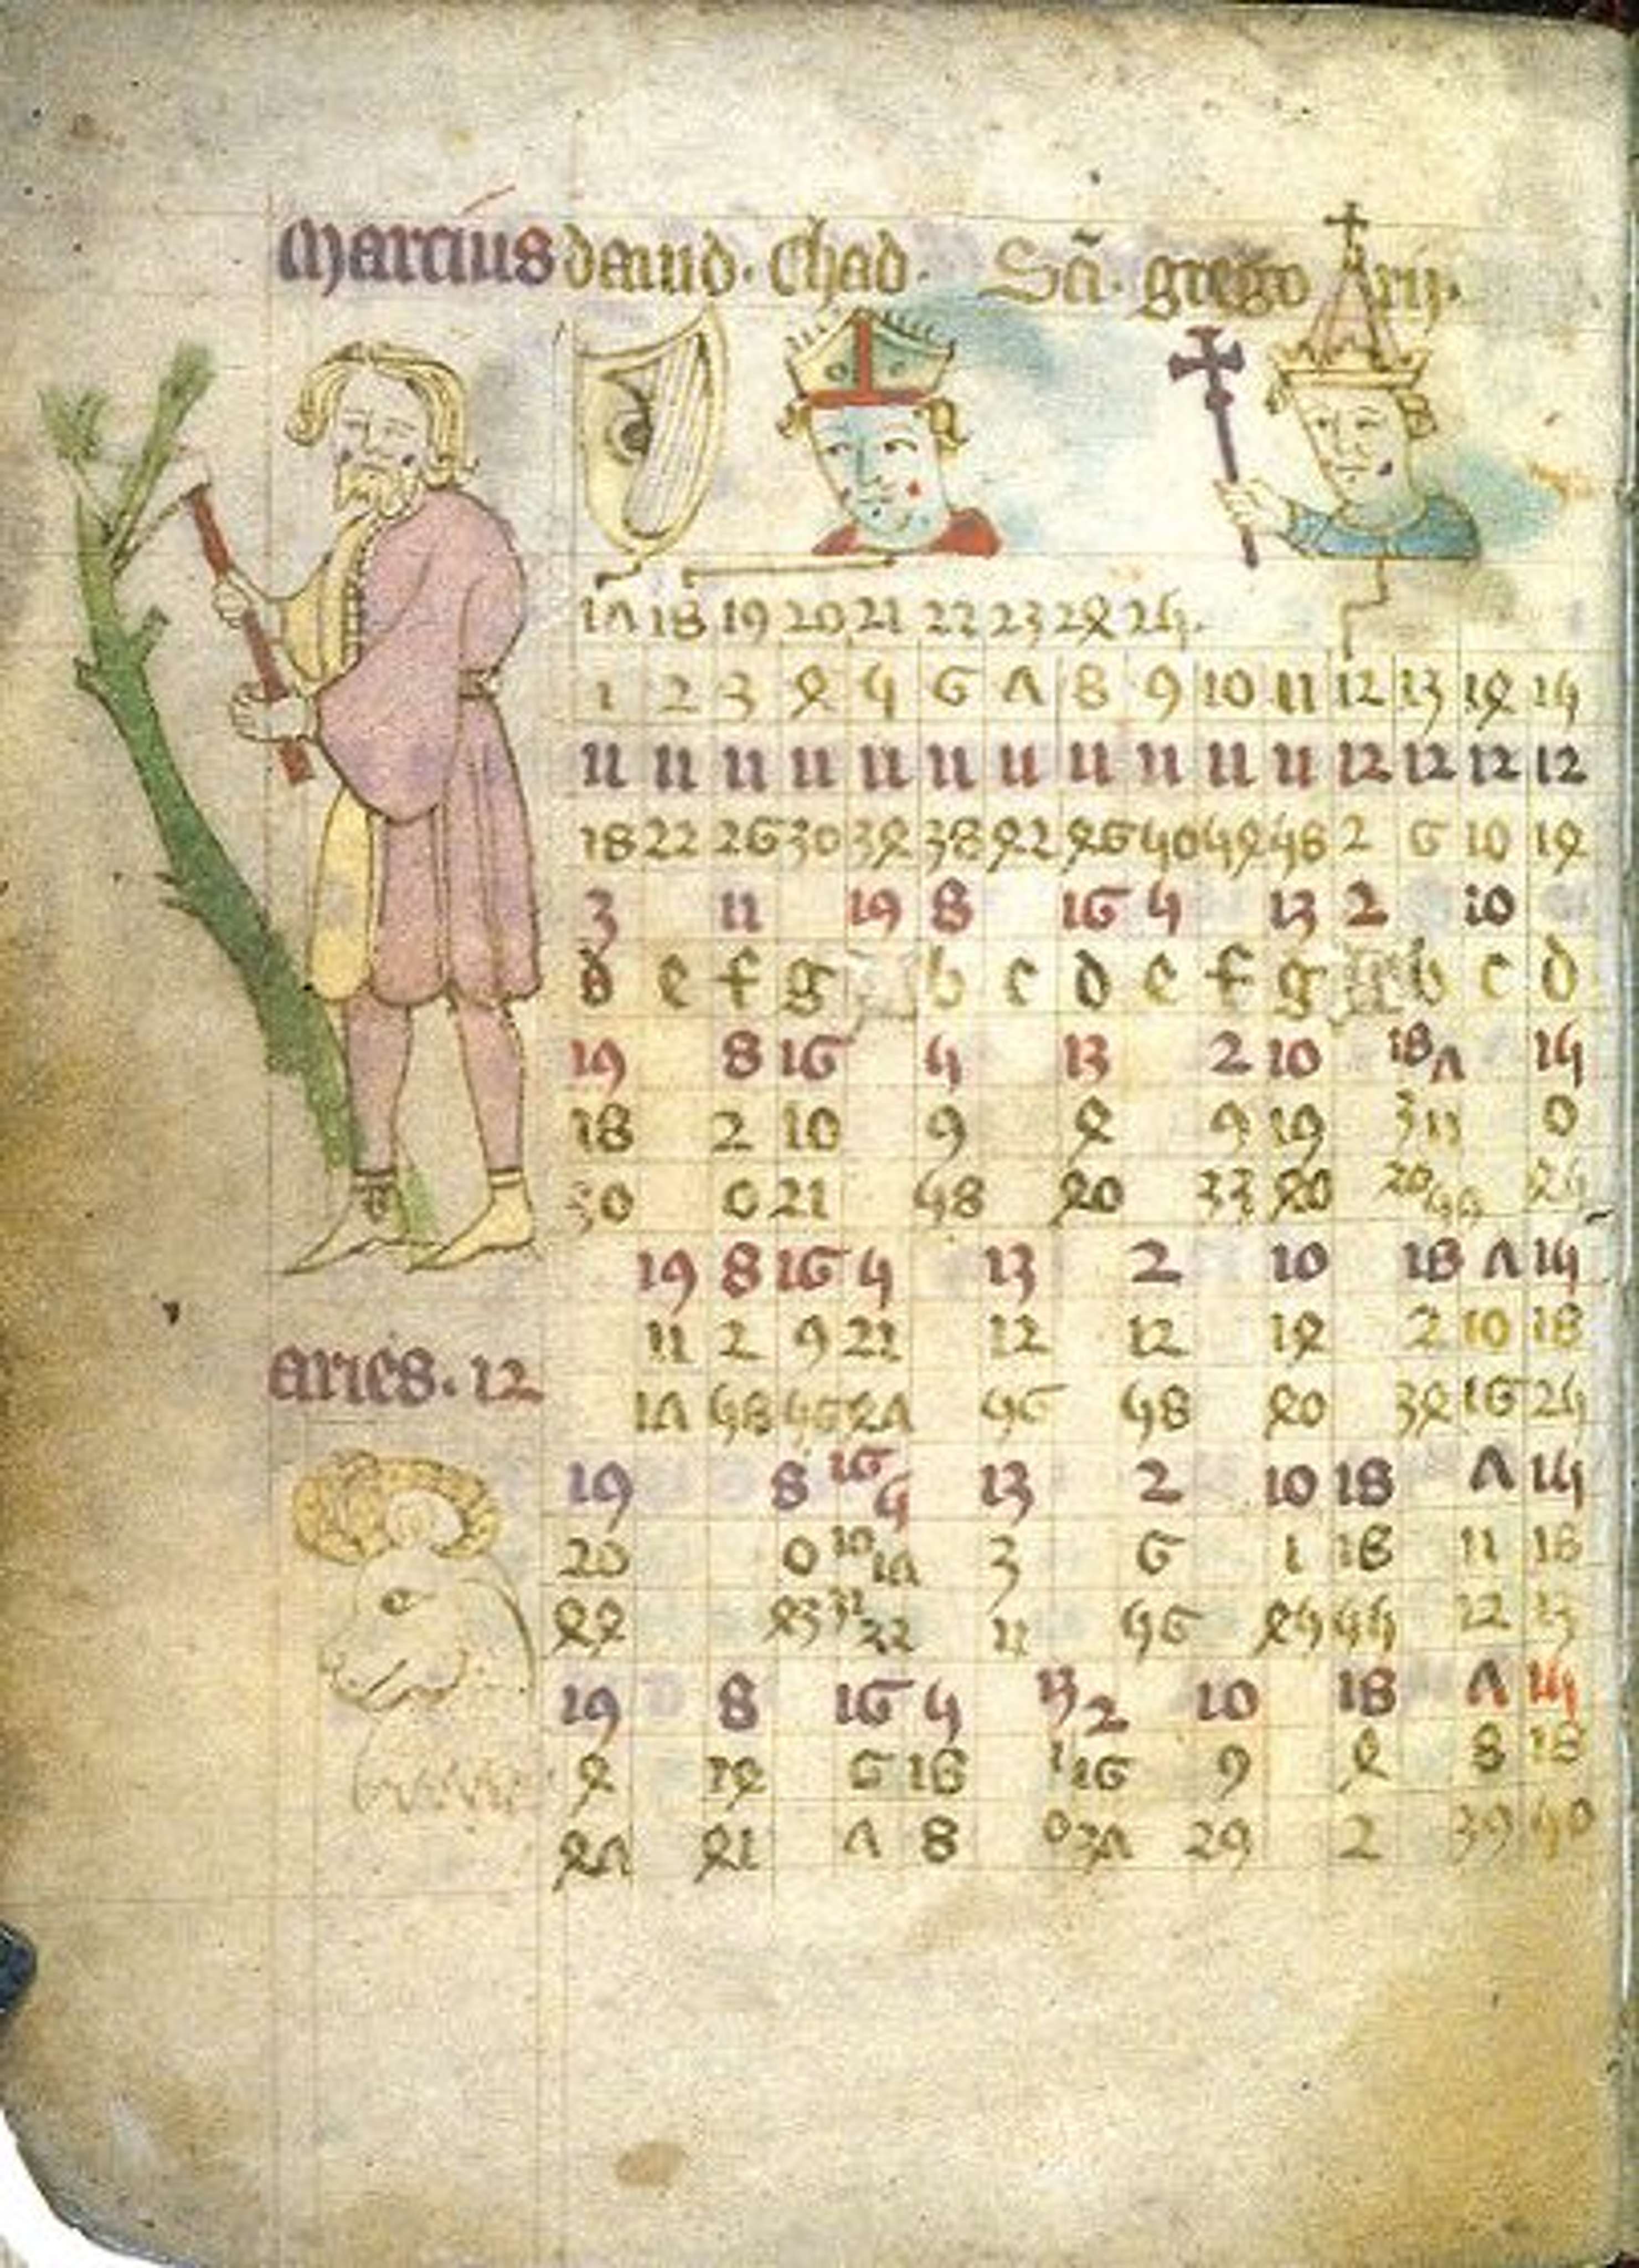 Marcius dauid. Chad. Sā. grego rij.
17 18 19 20 21 22 23 24 25.
1 2 3 4 5 6 7 8 9 10 11 12 13 14 15
11 11 11 11 11 11 11 11 11 11 11 12 12 12 12
18 22 26 30 34 38 42 46 50 54 58 2 6 10 14
3 11 19 8 16 5 13 2 10
d e f g b c d e f g b c d
19 8 16 5 13 2 10 18 7 15
18 2 10 9 4 9 19 3 11 0
30 0 21 58 40 33 40 20
19 8 16 5 13 2 10 18 7 15
11 2 9 21 12 12 14 2 10 18
aries. 12
17 58 56 47 56 58 40 34 16 25
19 8 16 5 13 2 10 18 7 15
20 0 10 17 3 6 1 18 11 18
44 43 31 22 11 56 45 55 12 13
19 8 16 5 13 2 10 18 7 15
4 14 6 16 1 16 9 4 8 18
47 41 7 8 0 37 29 2 39 50